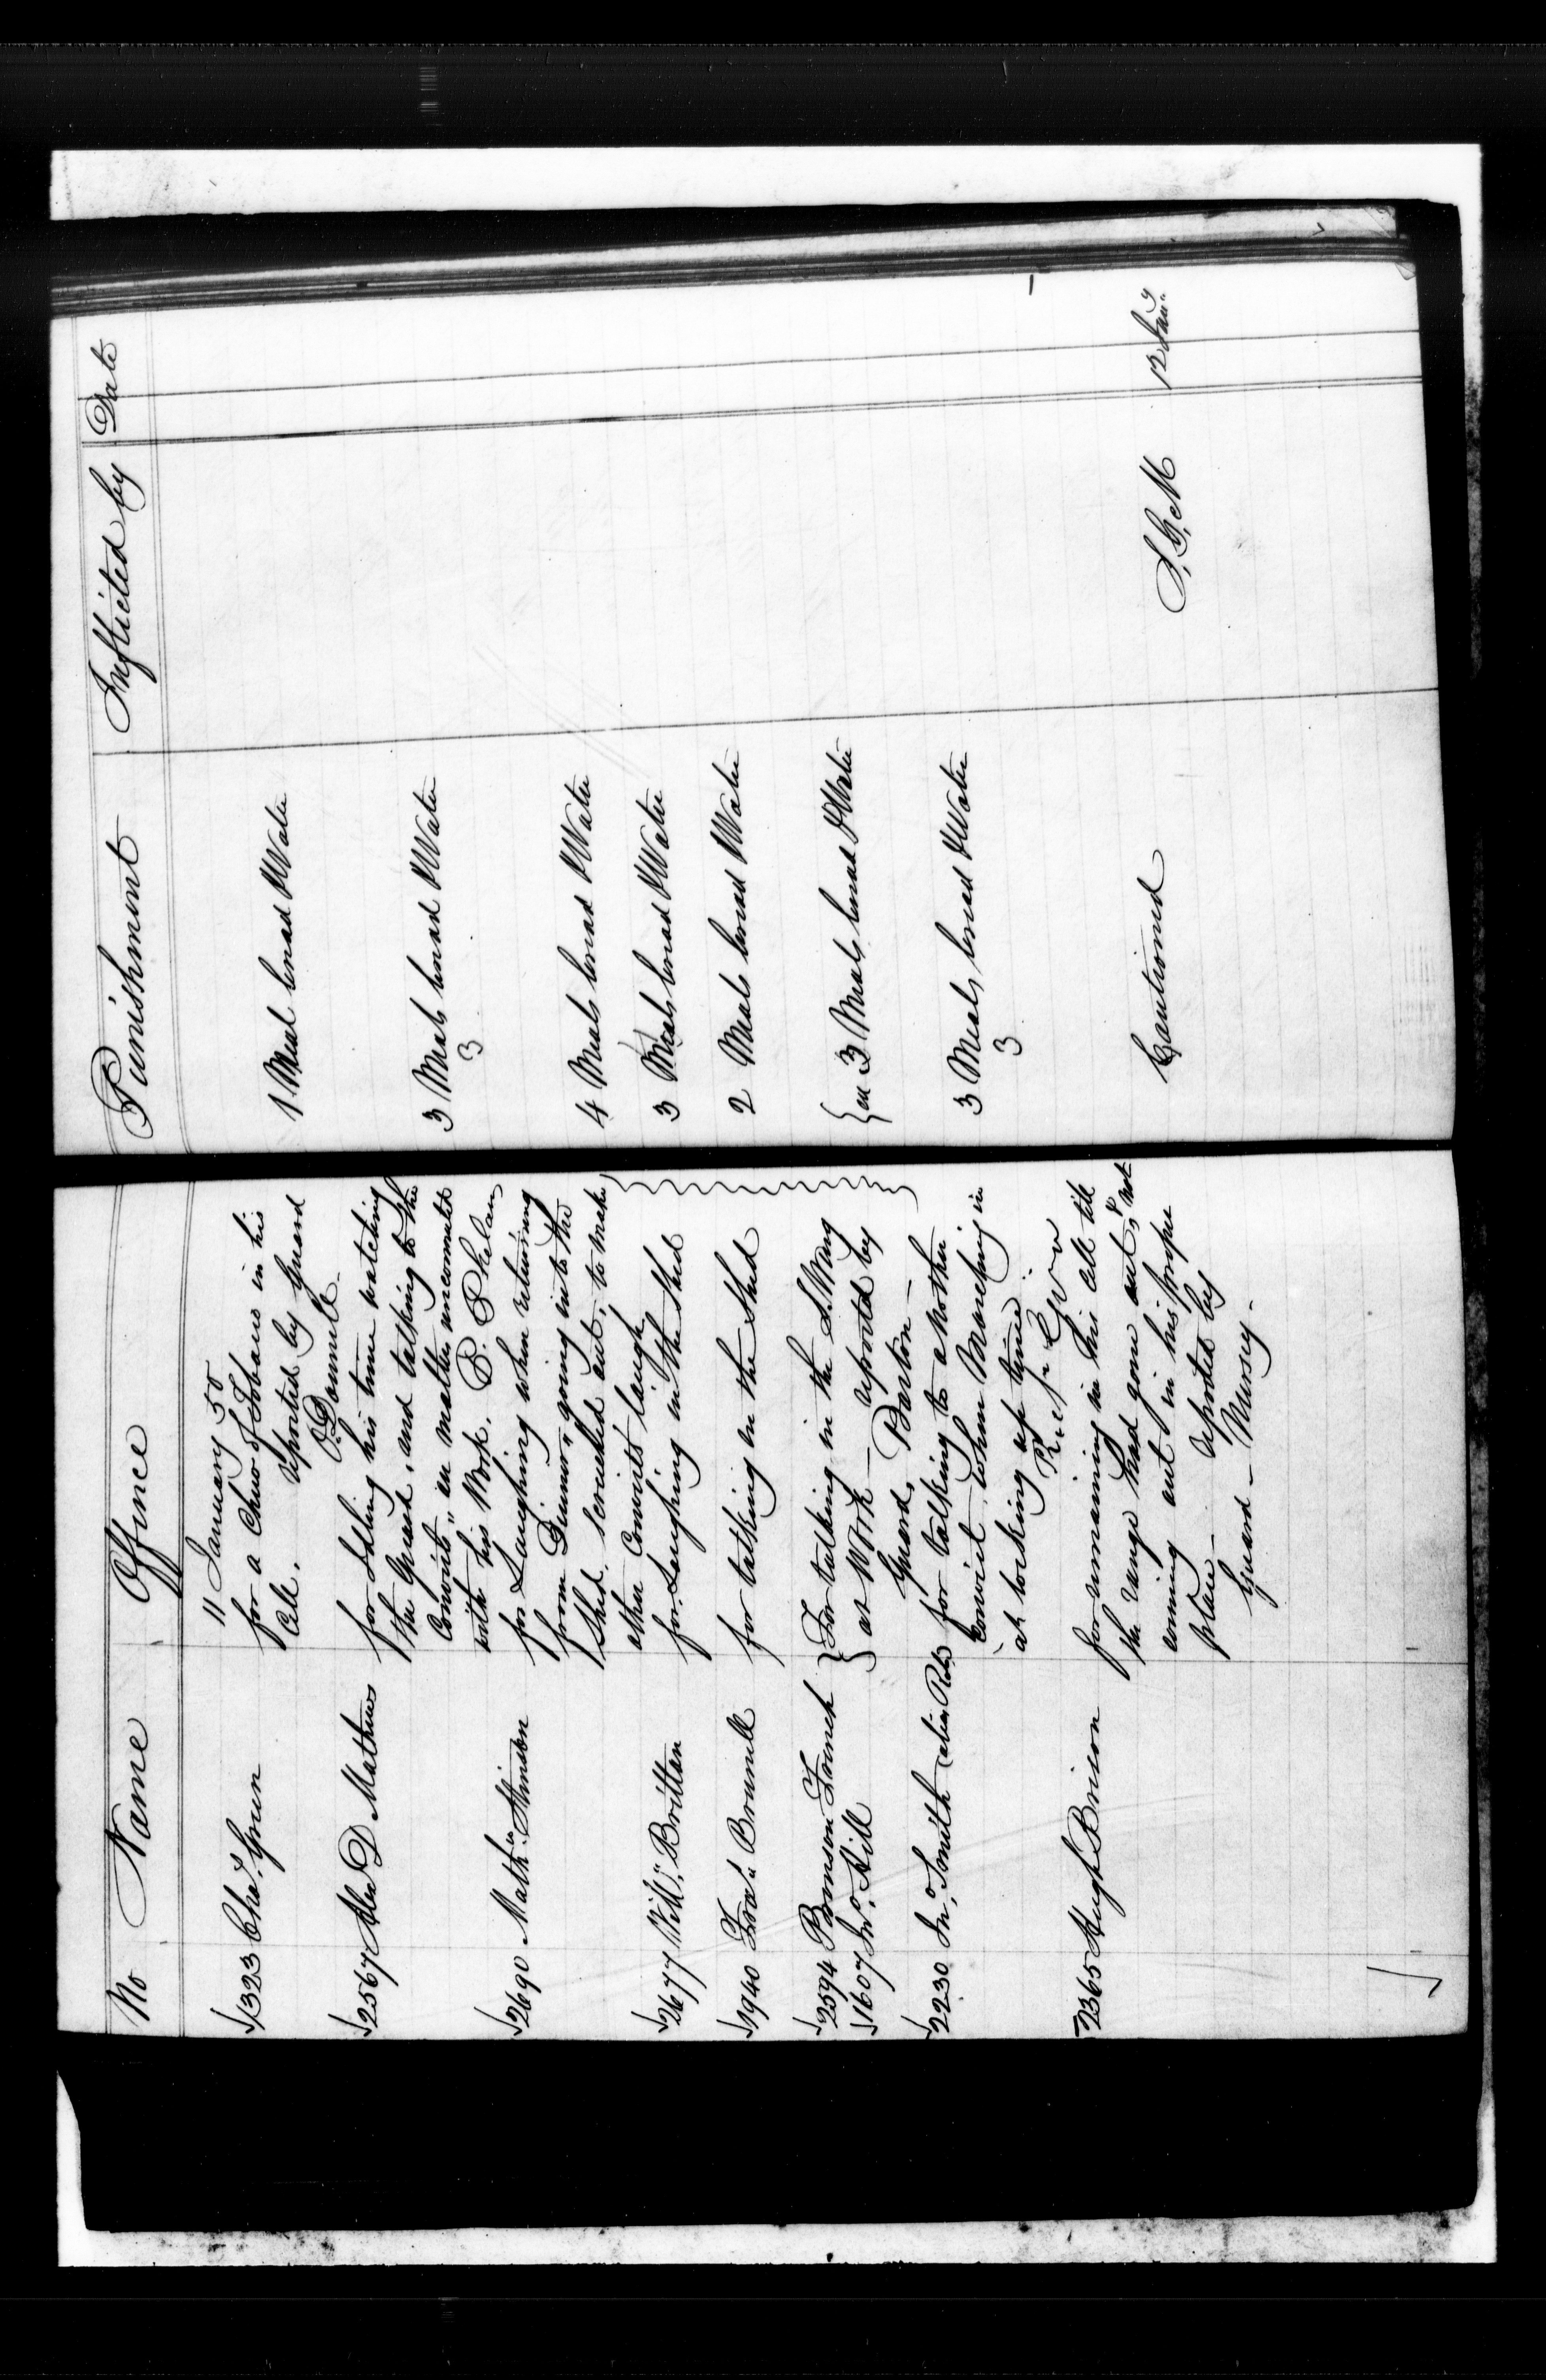 No Name Offence Punishment Inflicted by Date
11 January 50
1323 Chas. Green for a Chew of Tobacco in his
Cell. reported by Guard 1 Meal bread & Water
O.Donnell
2567 Alex D Mathews for Idling his time watching
the Guard, and talking to the
Convicts "in matters unconnected 3 Meals bread & Water
with his Work. P. Phelan 3
2690 Mathw. Stinson for Laughing when returning
from Dinner, going into the
Shed. screeched out, to make 4 Meals bread & Water
other Convicts laugh
2677 Willm. Britton for Laughing in the Shed 3 Meals bread & Water
1940 Fras. Brunell for talking in the Shed 2 Meals bread & Water
2594 Bronson French For talking in the S. Wing
1607 Jno. Hill at Work - reported by ea 3 Meals bread & Water
Guard, Barton -
2230 Jno. Smith alias Robt for talking to another
convict when Marching in 3 Meals bread & Water
at locking up tyme. 3
2365 Hugh Brison for remaining in his cell till
the range had gone out, & not
coming out in his proper Cautioned S, G, M 12 Jany.
place - reported by
Guard - Mursey -